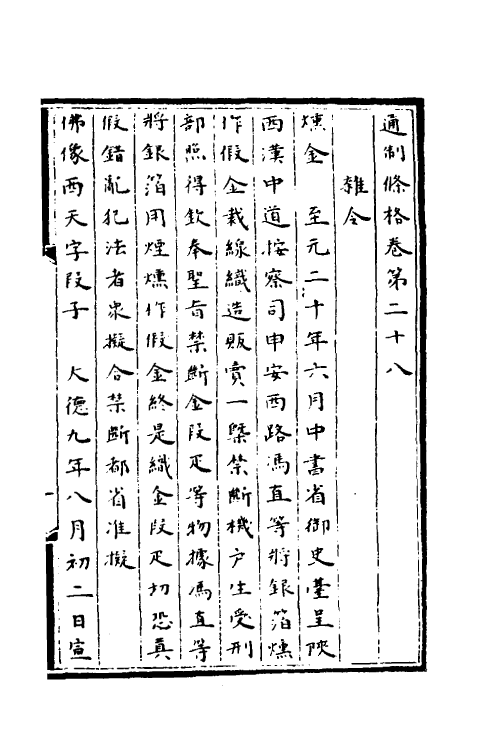 通制條格卷第二十八
雜令
燻金 至元二十年六月中書省御史臺呈陝
西漢中道按察司申安西路馮直等將銀箔燻
作假金裁線織造販賣一槩禁斷機户生受刑
部照得欽奉聖旨禁斷金段疋等物據馮直等
將銀箔用煙燻作假金終是織金段疋切恐真
假錯亂犯法者衆擬合禁斷都省准擬
佛像西天字段子 大德九年八月初二日宣